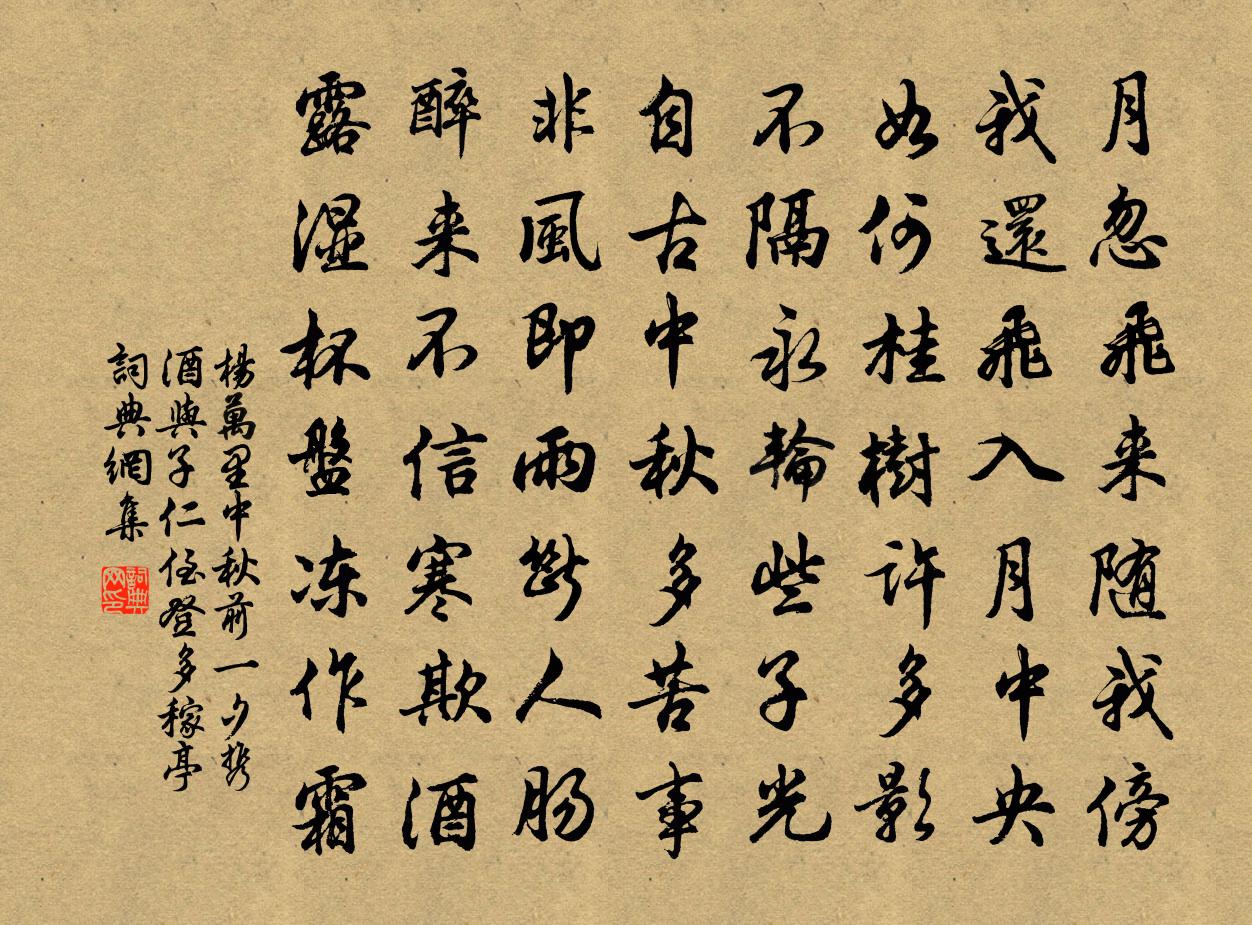 月忽飛来随我傍
我還飛入月中央
如何桂樹許多影
不隔冰輪些子光
自古中秋多苦事
非風即雨斷人肠
醉来不信寒欺酒
露湿杯盤冻作霜
楊萬里中秋前一夕携
酒與子仁侄登多稼亭
詞典網集
詞典
网印